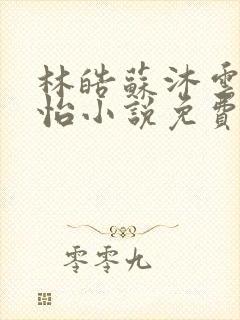 林皓蘇沐雲
怡小說免費
零零九